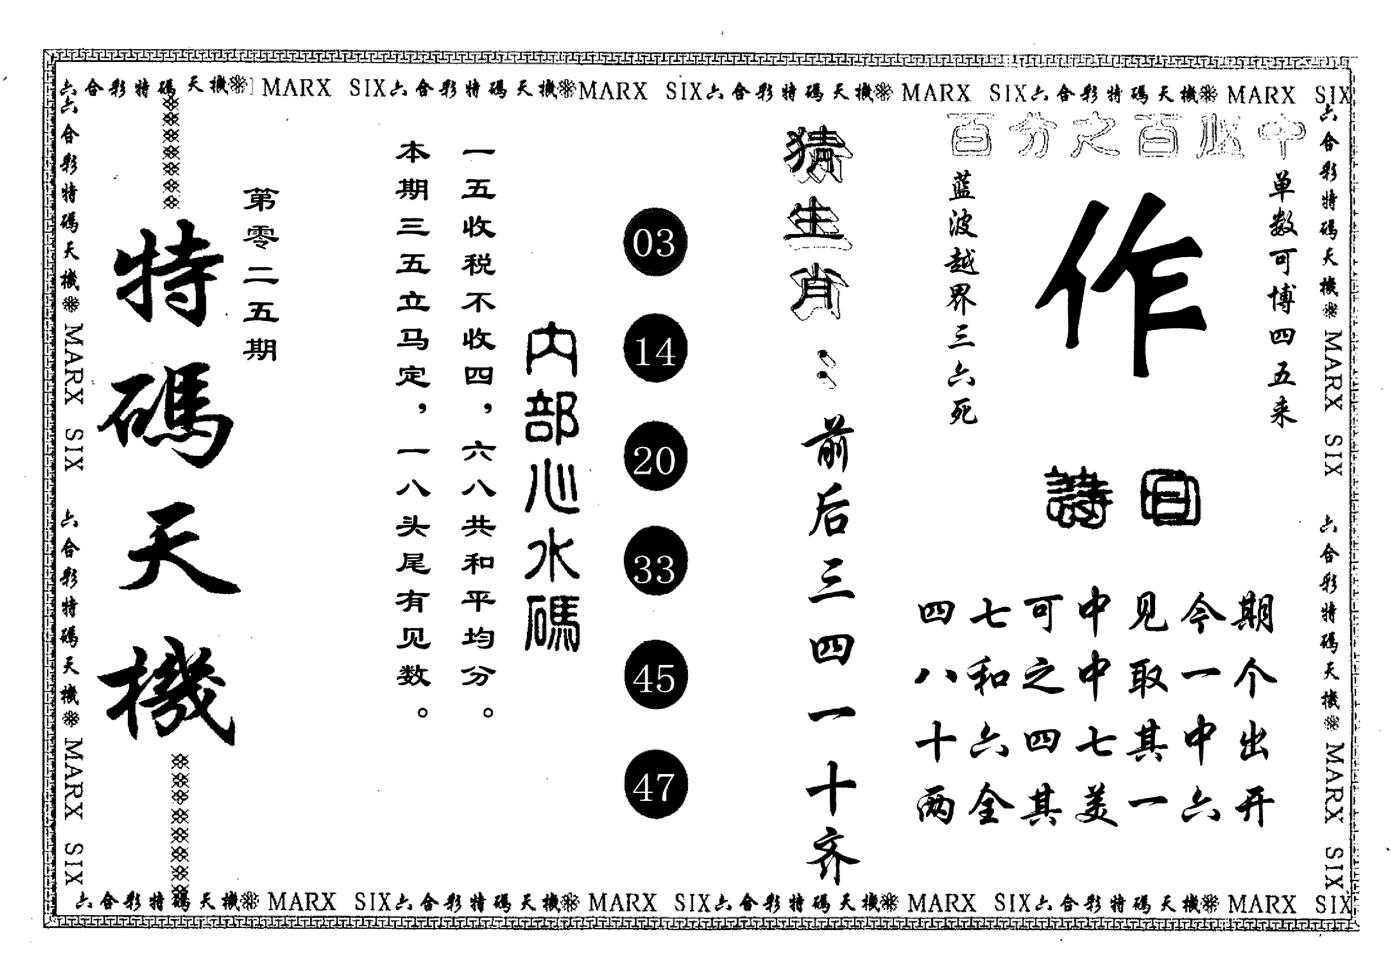 六合彩特碼天機❊ MARX SIX六合彩特碼天機❊MARX SIX六合彩特碼天機❊ MARX SIX六合彩特碼天機❊ MARX SIX
六合彩特碼天機❊ MARX SIX 六合彩特碼天機❊ MARX SIX
特碼天機
第零二五期
一五收税不收四，六八共和平均分。
本期三五立马定，一八头尾有见数。
内部心水碼
03
14
20
33
45
47
猜生肖：前后三四一十齐
百分之百必中
单数可博四五来
作
蓝波越界三六死
詩曰
四七可中见今期
八和之中取一个
十六四七其中出
两全其美一六开
六合彩特碼天機❊ MARX SIX 六合彩特碼天機❊ MARX SIX
六合彩特碼天機❊ MARX SIX六合彩特碼天機❊ MARX SIX六合彩特碼天機❊ MARX SIX六合彩特碼天機❊ MARX SIX